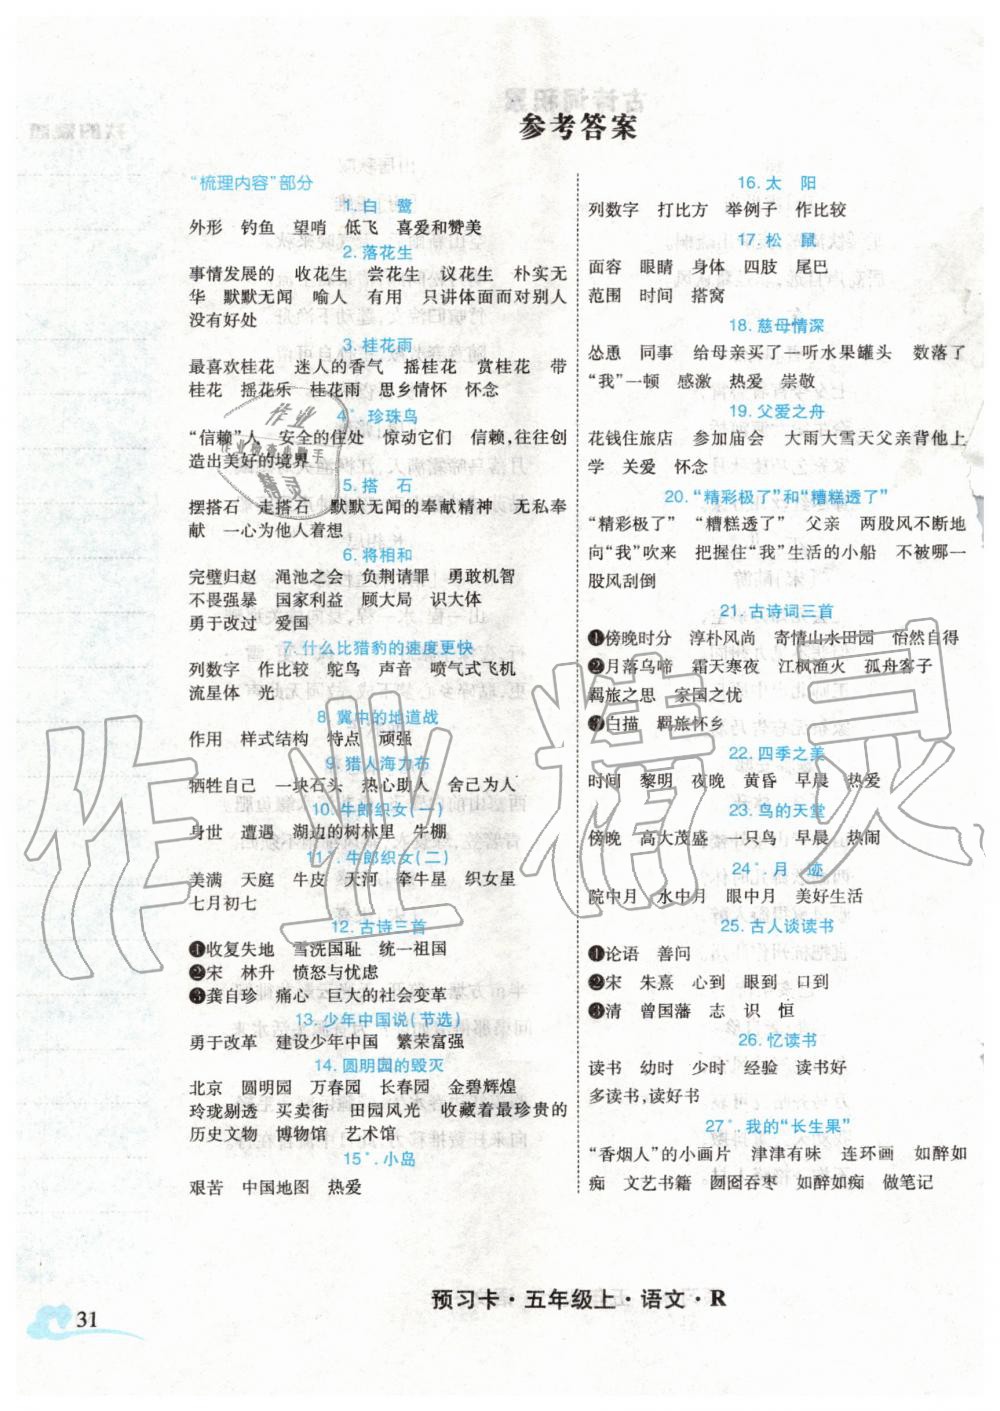 参考答案
“梳理内容”部分
1. 白　鹭
外形　钓鱼　望哨　低飞　喜爱和赞美
2. 落花生
事情发展的　收花生　尝花生　议花生　朴实无
华　默默无闻　喻人　有用　只讲体面而对别人
没有好处
3. 桂花雨
最喜欢桂花　迷人的香气　摇桂花　赏桂花　带
桂花　摇花乐　桂花雨　思乡情怀　怀念
4*. 珍珠鸟
“信赖”人　安全的住处　惊动它们　信赖,往往创
造出美好的境界
5. 搭　石
摆搭石　走搭石　默默无闻的奉献精神　无私奉
献　一心为他人着想
6. 将相和
完璧归赵　渑池之会　负荆请罪　勇敢机智
不畏强暴　国家利益　顾大局　识大体
勇于改过　爱国
7. 什么比猎豹的速度更快
列数字　作比较　鸵鸟　声音　喷气式飞机
流星体　光
8. 冀中的地道战
作用　样式结构　特点　顽强
9. 猎人海力布
牺牲自己　一块石头　热心助人　舍己为人
10. 牛郎织女(一)
身世　遭遇　湖边的树林里　牛棚
11*. 牛郎织女(二)
美满　天庭　牛皮　天河　牵牛星　织女星
七月初七
12. 古诗三首
❶收复失地　雪洗国耻　统一祖国
❷宋　林升　愤怒与忧虑
❸龚自珍　痛心　巨大的社会变革
13. 少年中国说(节选)
勇于改革　建设少年中国　繁荣富强
14. 圆明园的毁灭
北京　圆明园　万春园　长春园　金碧辉煌
玲珑剔透　买卖街　田园风光　收藏着最珍贵的
历史文物　博物馆　艺术馆
15*. 小岛
艰苦　中国地图　热爱
16. 太　阳
列数字　打比方　举例子　作比较
17. 松　鼠
面容　眼睛　身体　四肢　尾巴
范围　时间　搭窝
18. 慈母情深
怂恿　同事　给母亲买了一听水果罐头　数落了
“我”一顿　感激　热爱　崇敬
19. 父爱之舟
花钱住旅店　参加庙会　大雨大雪天父亲背他上
学　关爱　怀念
20. “精彩极了”和“糟糕透了”
“精彩极了”　“糟糕透了”　父亲　两股风不断地
向“我”吹来　把握住“我”生活的小船　不被哪一
股风刮倒
21. 古诗词三首
❶傍晚时分　淳朴风尚　寄情山水田园　怡然自得
❷月落乌啼　霜天寒夜　江枫渔火　孤舟客子
羁旅之思　家国之忧
❸白描　羁旅怀乡
22. 四季之美
时间　黎明　夜晚　黄昏　早晨　热爱
23. 鸟的天堂
傍晚　高大茂盛　一只鸟　早晨　热闹
24*. 月　迹
院中月　水中月　眼中月　美好生活
25. 古人谈读书
❶论语　善问
❷宋　朱熹　心到　眼到　口到
❸清　曾国藩　志　识　恒
26. 忆读书
读书　幼时　少时　经验　读书好
多读书,读好书
27*. 我的“长生果”
“香烟人”的小画片　津津有味　连环画　如醉如
痴　文艺书籍　囫囵吞枣　如醉如痴　做笔记
预习卡·五年级上·语文·R
31
作业精灵
作业
作业检查小助手
精灵